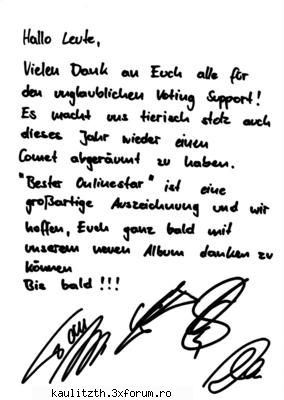 Hallo Leute,
Vielen Dank an Euch alle für
den unglaublichen Voting Support!
Es macht uns tierisch stolz auch
dieses Jahr wieder einen
Comet abgeräumt zu haben.
"Bester Onlinestar" ist eine
großartige Auszeichnung und wir
hoffen, Euch ganz bald mit
unserem neuen Album danken zu
können
Bis bald !!!
kaulitzth.3xforum.ro